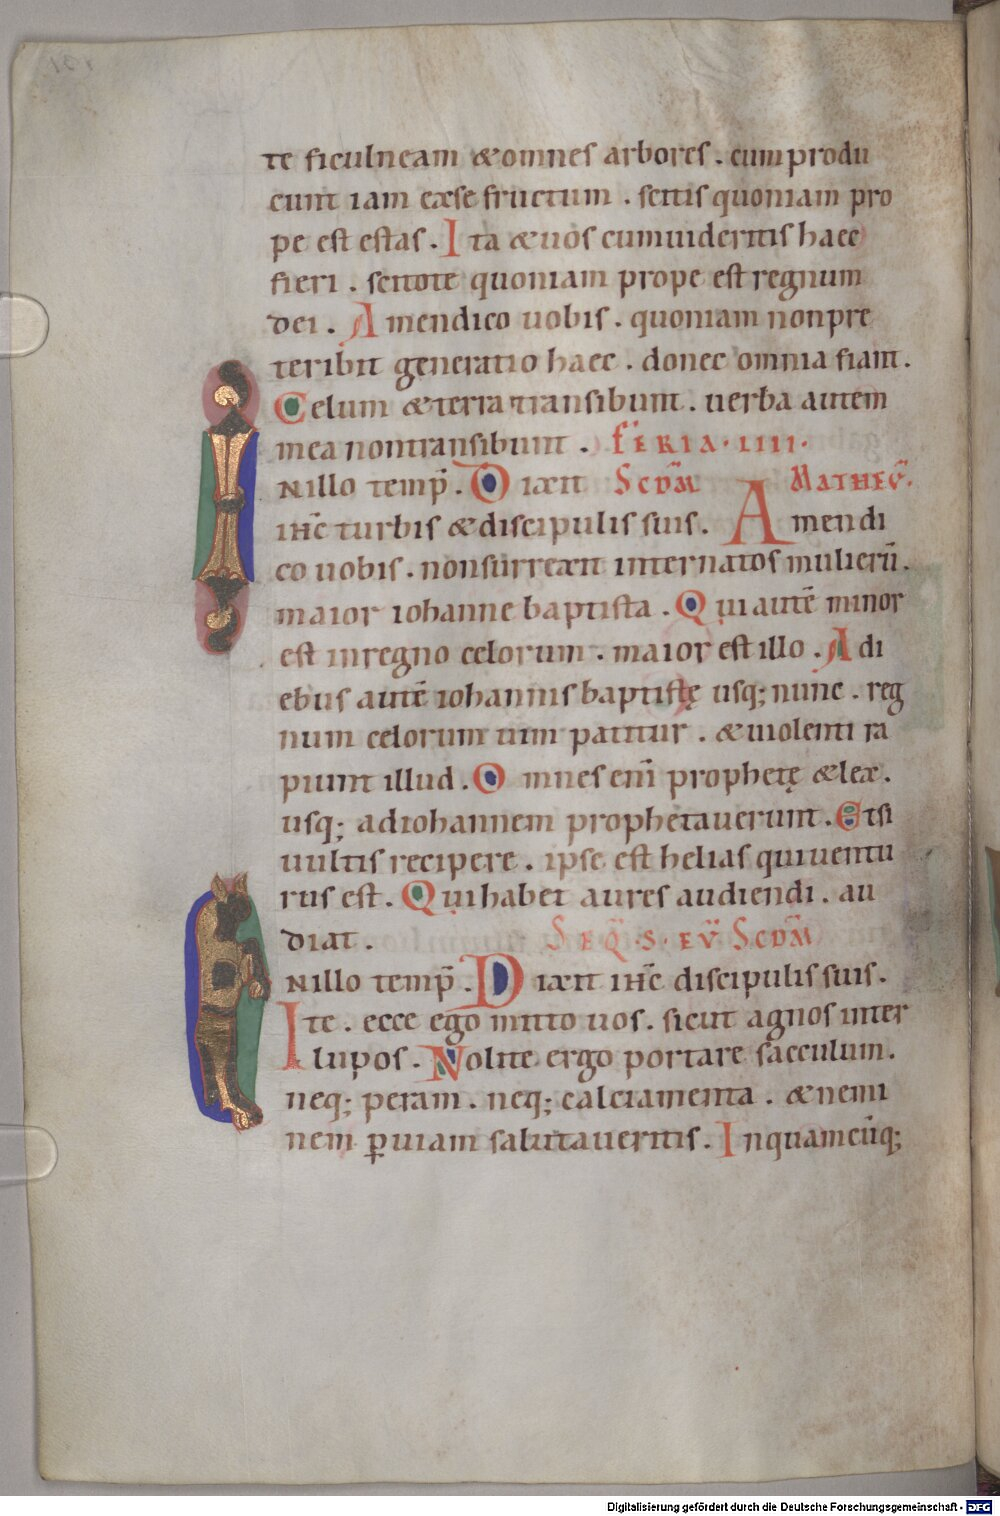 te ficulneam & omnes arbores . cum produ
cunt iam ex se fructum . scitis quoniam pro
pe est estas . Ita & uos cum uideritis haec
fieri . scitote quoniam prope est regnum
dei . Amen dico uobis . quoniam non pre
teribit generatio haec . donec omnia fiant .
Celum & terra transibunt . uerba autem
mea non transibunt . FERIA · IIII ·
Nillo temp̄ . Dixit SCDM̄ MATHEV̄ .
ihc̄ turbis & discipulis suis . Amen di
co uobis . non surrexit inter natos mulierū .
maior iohanne baptista . Qui autē minor
est in regno celorum . maior est illo . A di
ebus autē iohannis baptistę usq; nunc . reg
num celorum uim patitur . & uiolenti ra
piunt illud . Omnes eni̅ prophetę & lex .
usq; ad iohannem prophetauerunt . Et si
uultis recipere . ipse est helias qui uentu
rus est . Qui habet aures audiendi . au
diat . SEQ̄ · S · EV̄ SCDM̄
Nillo temp̄ . Dixit ihc̄ discipulis suis .
Ite . ecce ego mitto uos . sicut agnos inter
lupos . Nolite ergo portare sacculum .
neq; peram . neq; calciamenta . & nemi
nem ꝑ uiam salutaueritis . In quamcūq;
Digitalisierung gefördert durch die Deutsche Forschungsgemeinschaft - DFG